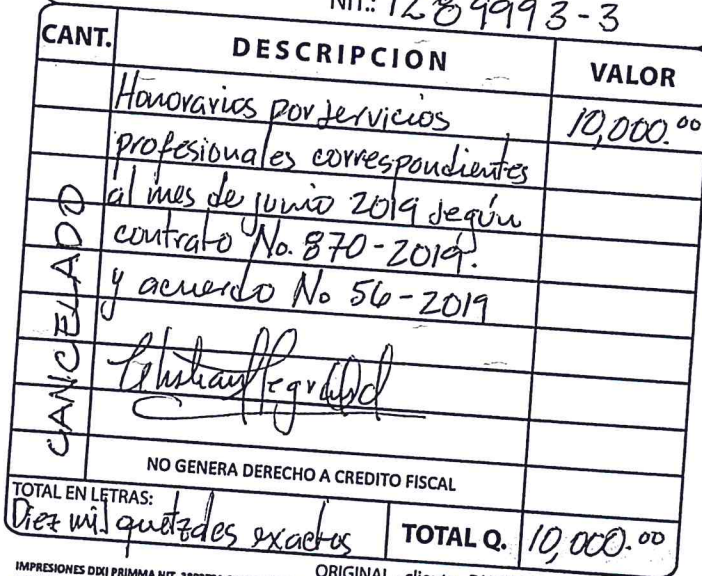 NIT.: 1289993-3
CANT. DESCRIPCION VALOR
Honorarios por servicios 10,000.00
profesionales correspondientes
al mes de junio 2019 según
contrato No. 870-2019.
y acuerdo No 56-2019
CANCELADO
NO GENERA DERECHO A CREDITO FISCAL
TOTAL EN LETRAS:
Diez mil quetzales exactos TOTAL Q. 10,000.00
IMPRESIONES DIXI PRIMMA NIT.
ORIGINAL